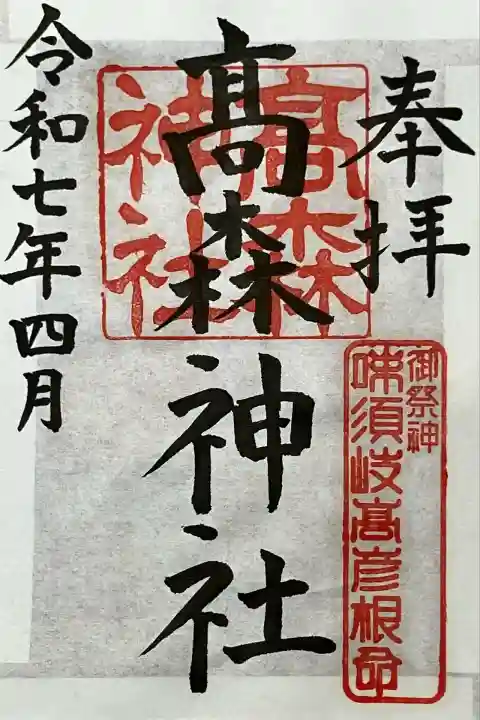 奉拝
御祭神
味須岐高彦根命
髙森神社
髙森
神社
令和七年四月